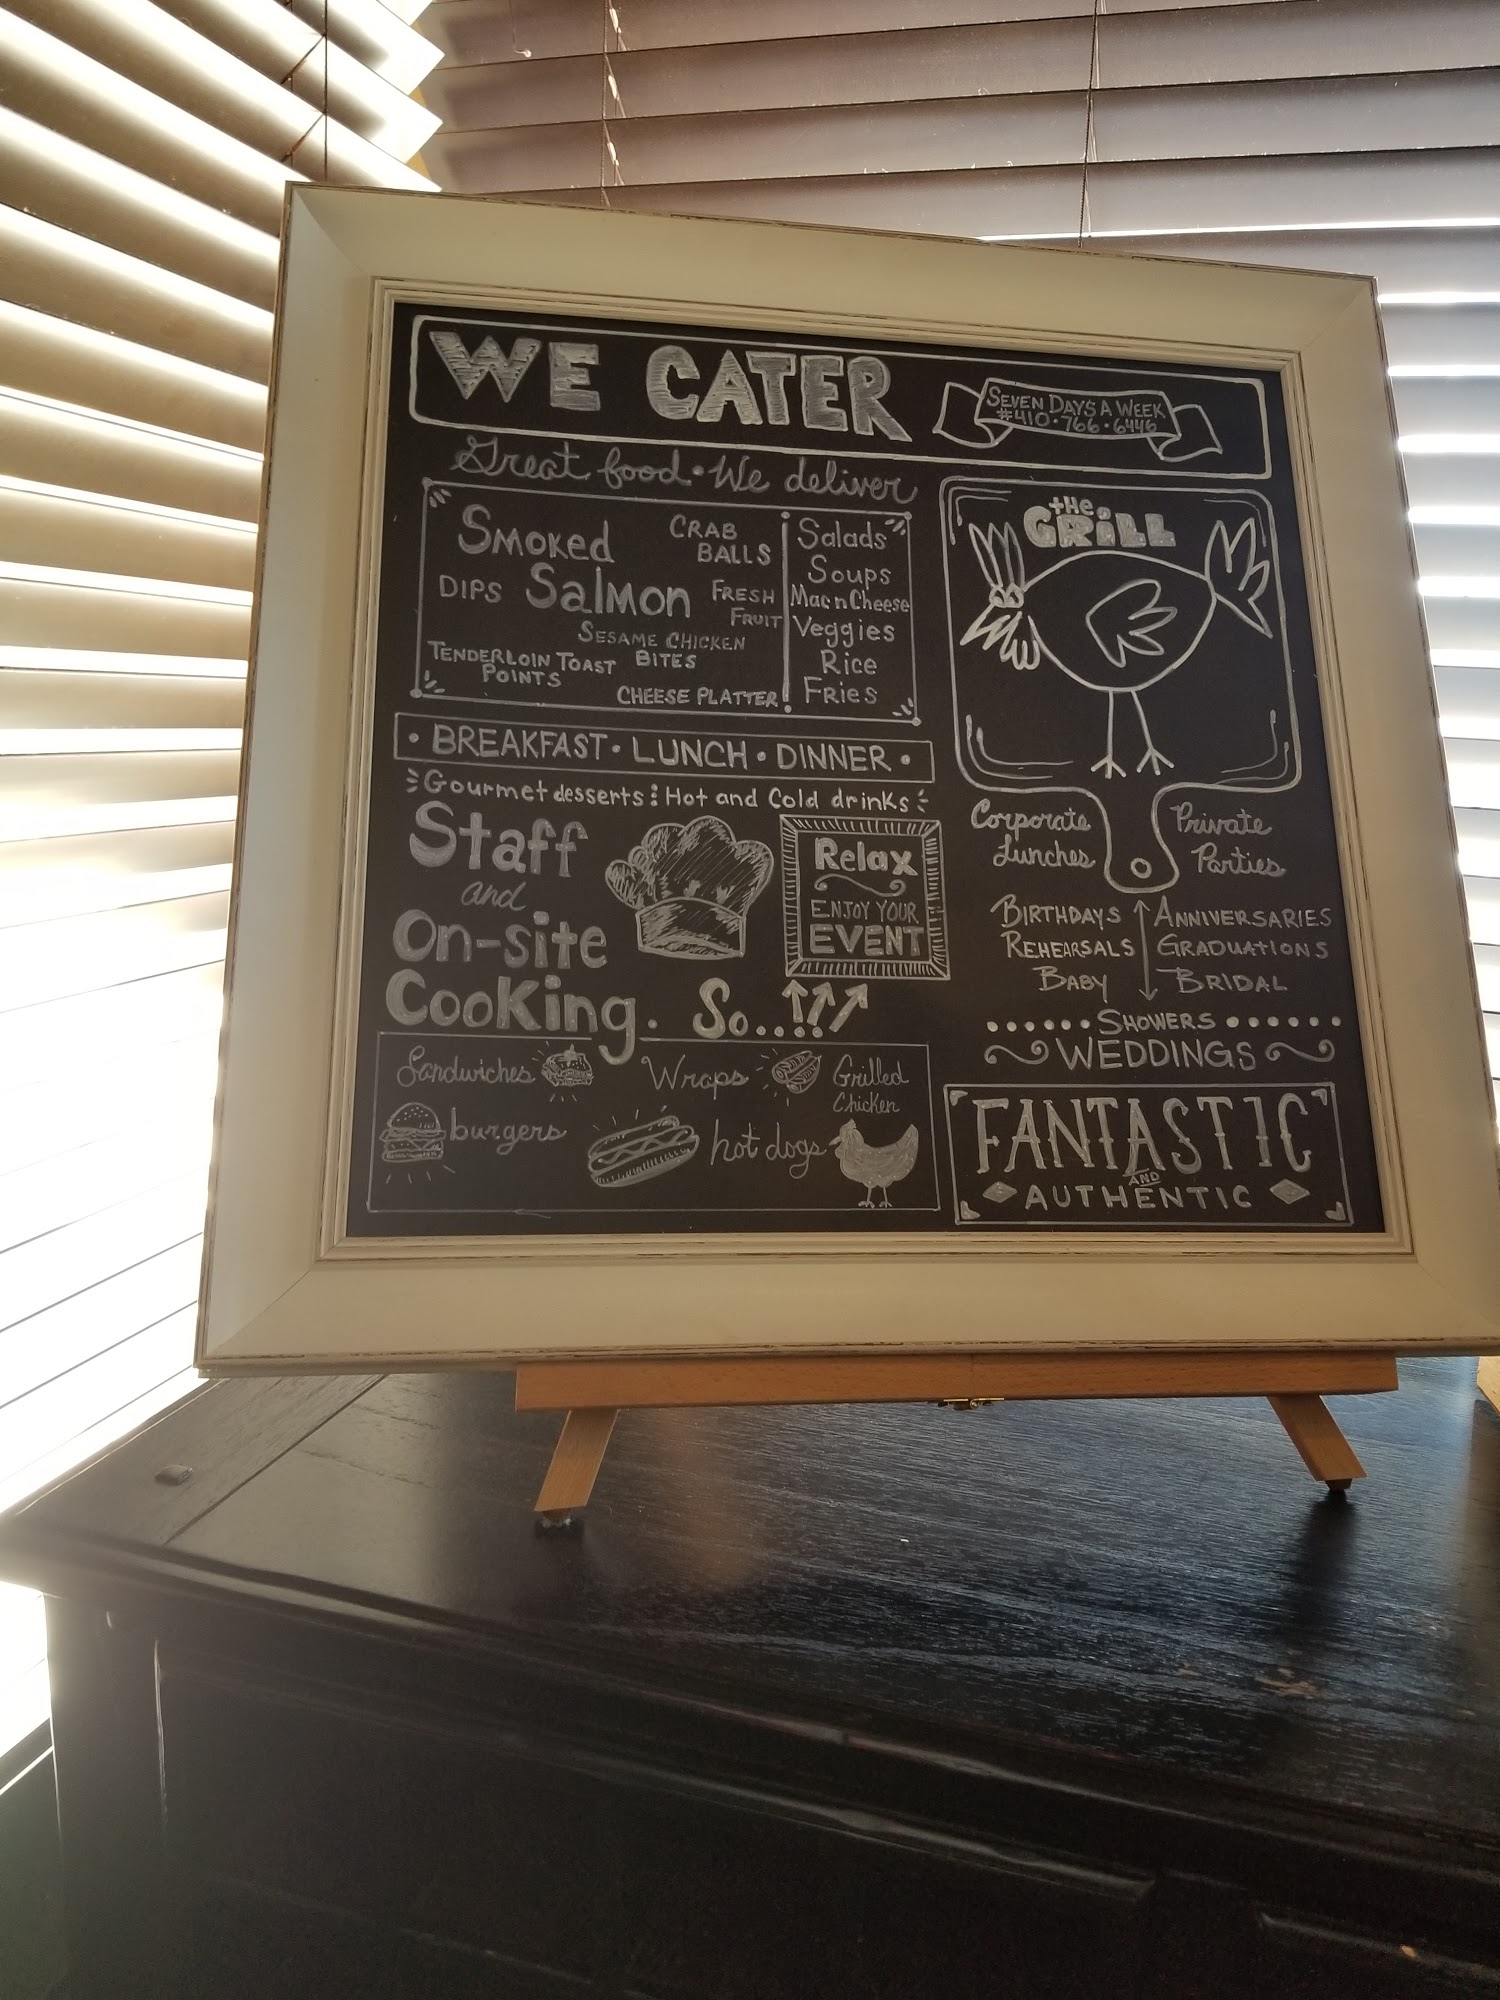 WE CATER
SEVEN DAYS A WEEK
#410·766·6446
Great food · We deliver
SMOKED
SALMON
CRAB
BALLS
DIPS
FRESH
FRUIT
SESAME CHICKEN
BITES
TENDERLOIN TOAST
POINTS
CHEESE PLATTER
Salads
Soups
Mac n Cheese
Veggies
Rice
Fries
· BREAKFAST · LUNCH · DINNER ·
Gourmet desserts : Hot and Cold drinks
Staff
and
On-site
Cooking. So..
Relax
ENJOY YOUR
EVENT
Sandwiches
Wraps
Grilled
Chicken
burgers
hot dogs
the
GRiLL
Corporate
Lunches
Private
Parties
BIRTHDAYS
REHEARSALS
BABY
ANNIVERSARIES
GRADUATIONS
BRIDAL
SHOWERS
WEDDINGS
FANTASTIC
AND
AUTHENTIC